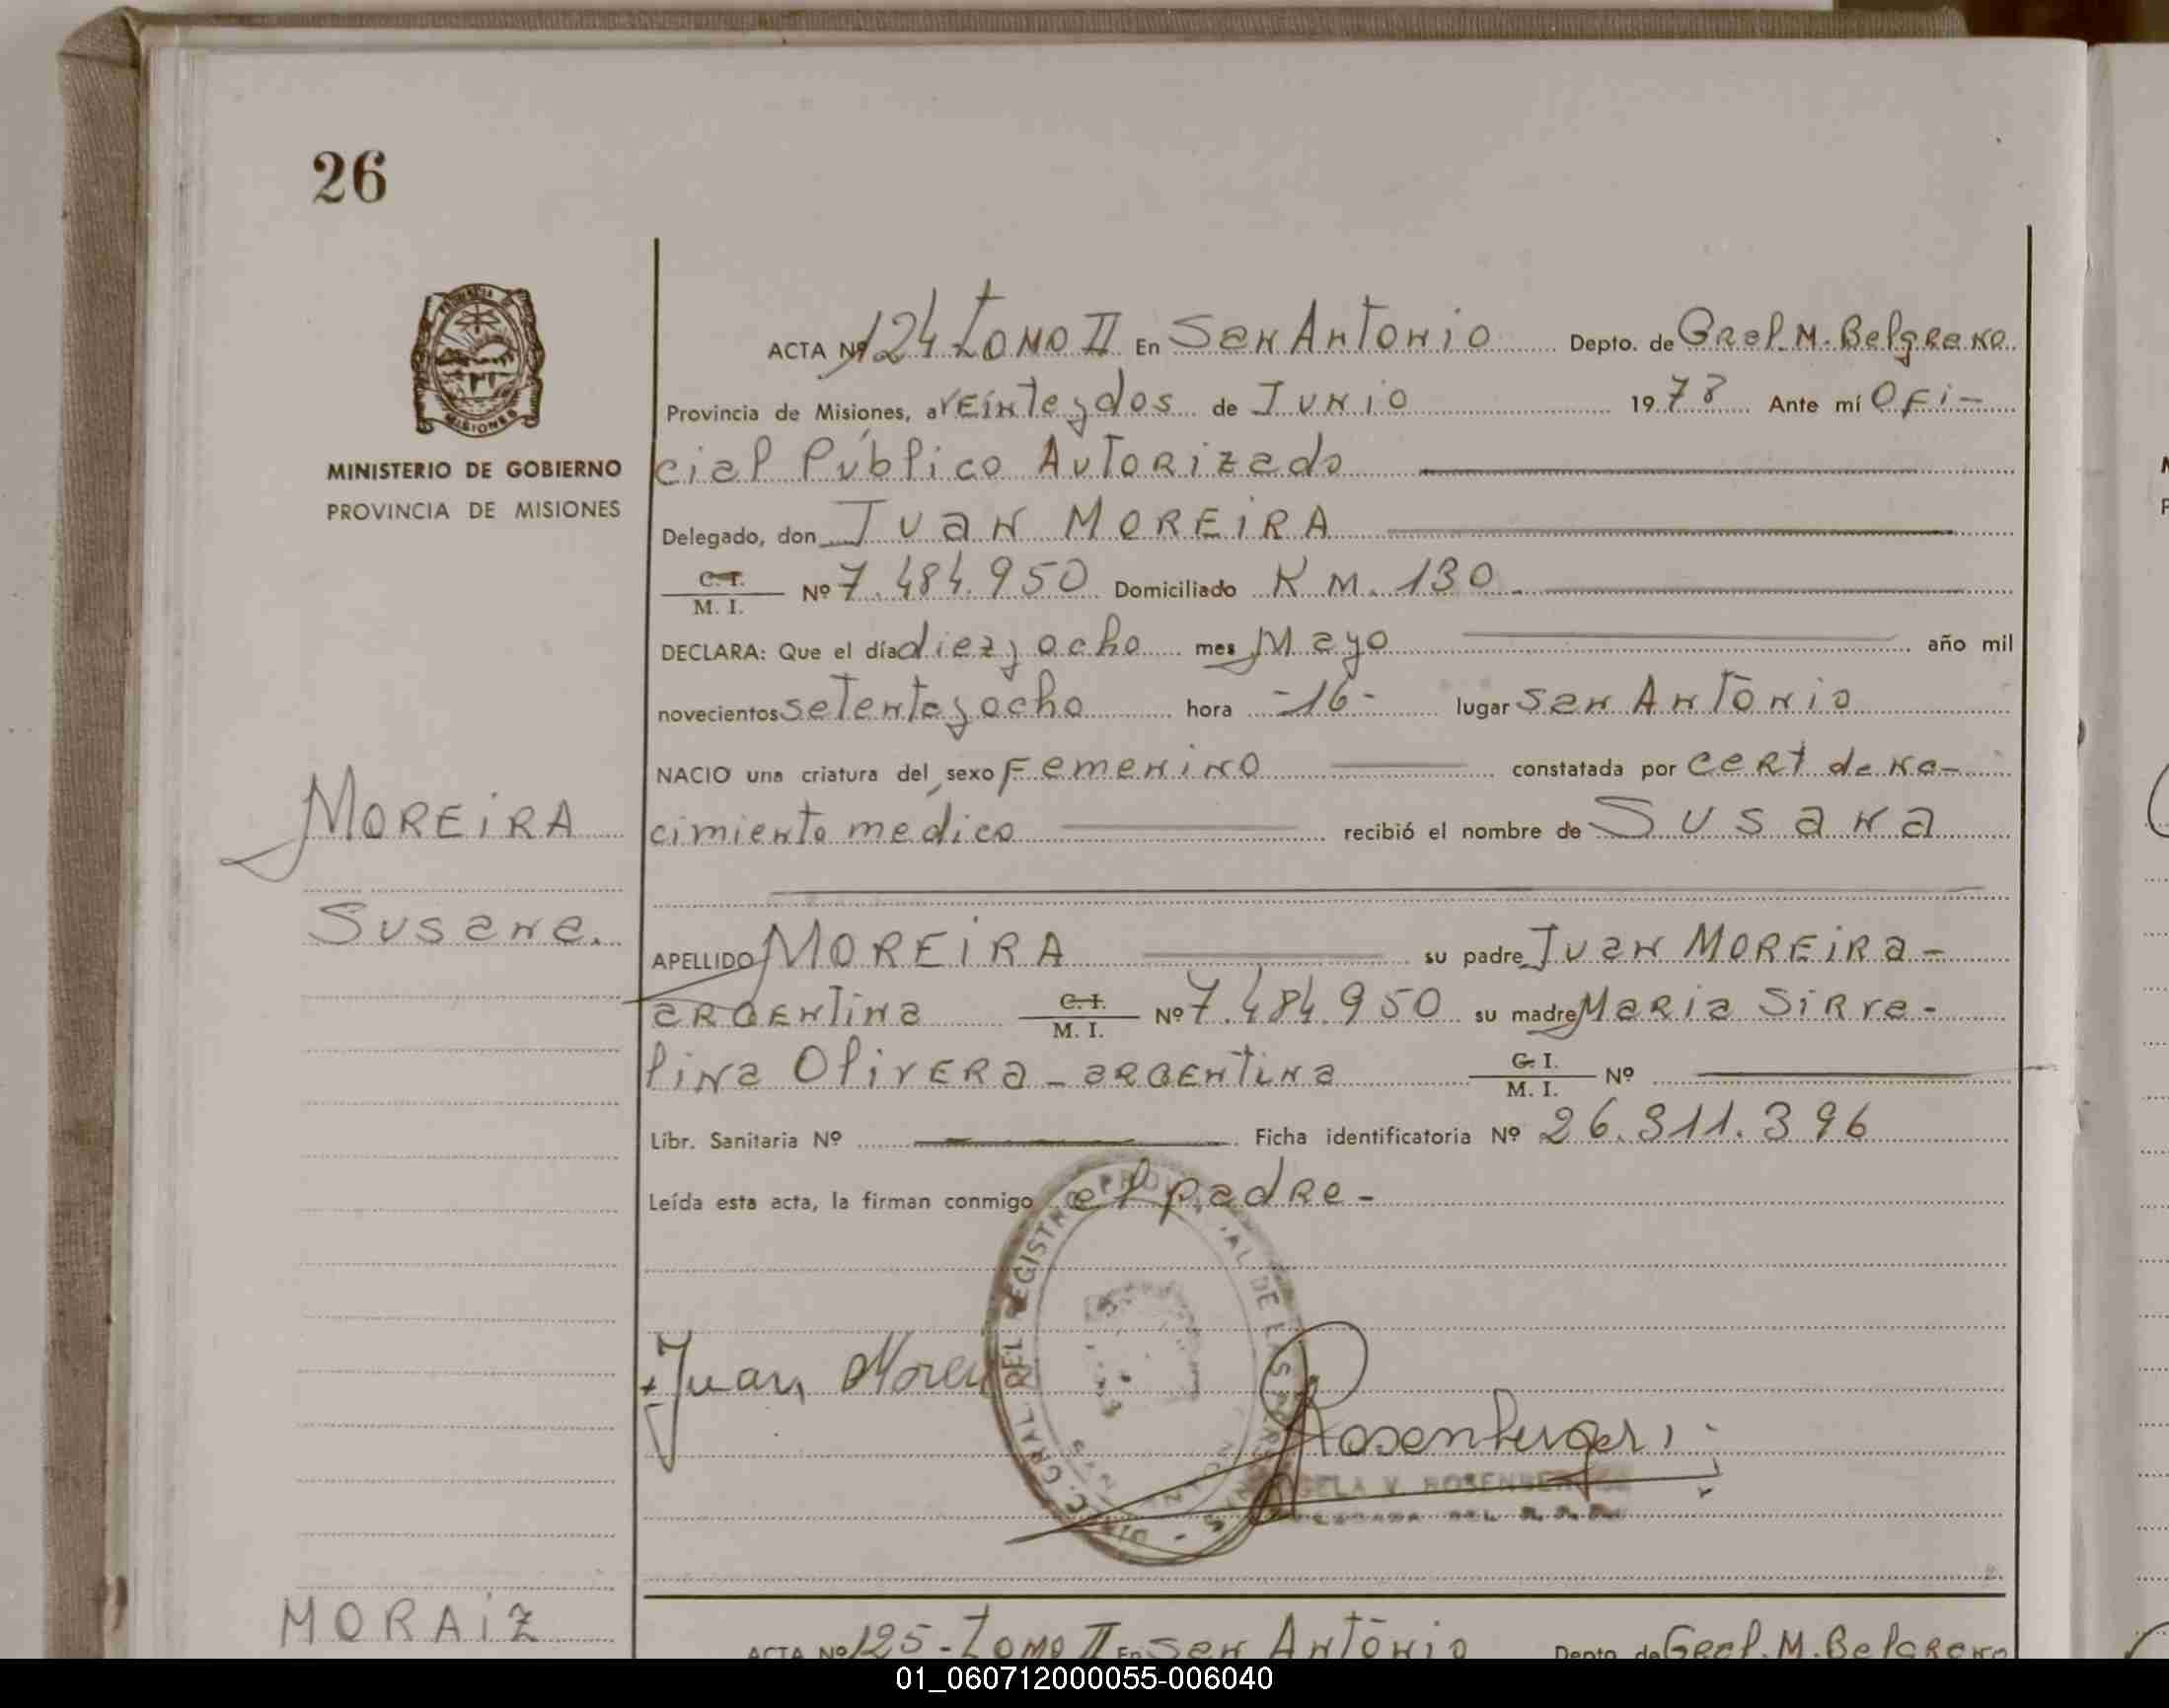 26
ACTA Nº 124 Tomo II En San Antonio Depto. de Gral. M. Belgrano
Provincia de Misiones, a veinte y dos de Junio 1978 Ante mí Ofi-
cial Público Autorizado
Delegado, don Juan MOREIRA
C. I.
M. I. Nº 7.484.950 Domiciliado K M. 130
DECLARA: Que el día diez y ocho mes Mayo año mil
novecientos setenta y ocho hora -16- lugar San Antonio
NACIO una criatura del sexo Femenino constatada por cert de na-
cimiento médico recibió el nombre de Susana
APELLIDO MOREIRA su padre Juan MOREIRA -
argentina C. I.
M. I. Nº 7.484.950 su madre Maria Sirva-
lina Olivera - argentina C. I.
M. I. Nº
Libr. Sanitaria Nº Ficha identificatoria Nº 26.311.396
Leída esta acta, la firman conmigo el padre -
Juan Morei
Rosenberger
MINISTERIO DE GOBIERNO
PROVINCIA DE MISIONES
MOREIRA
Susana.
MORAIZ
ACTA Nº 125 - Tomo II En San Antonio Depto de Gral. M. Belgrano
01_060712000055-006040